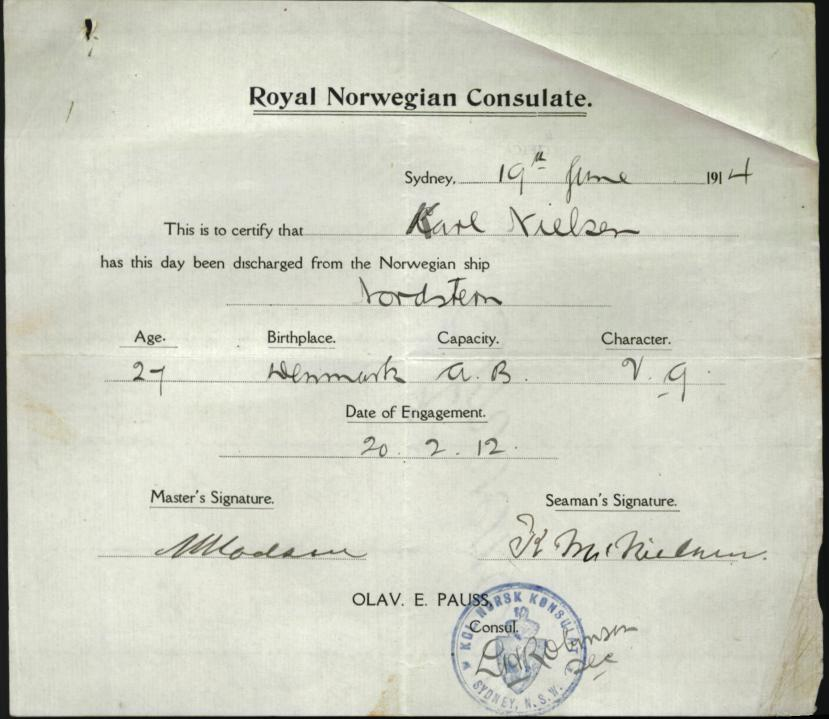 Royal Norwegian Consulate.
Sydney, 19th June 1914
This is to certify that Karl Nielsen
has this day been discharged from the Norwegian ship
Nordstern
Age. Birthplace. Capacity. Character.
27 Denmark A. B. V. g
Date of Engagement.
20. 2. 12.
Master's Signature. Seaman's Signature.
OLAV. E. PAUSS,
Consul.
KGL NORSK KONSULAT
SYDNEY, N.S.W.
Robinson
Sec